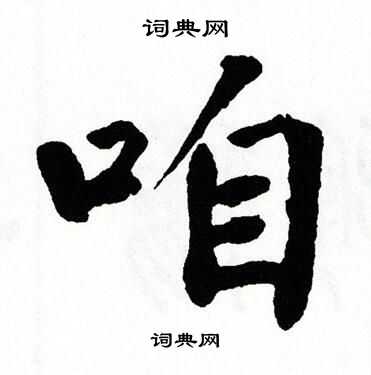 词典网
咱
词典网